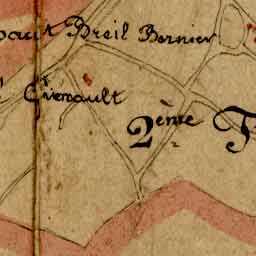 haut Breil Bernier
Grenault
2ème T